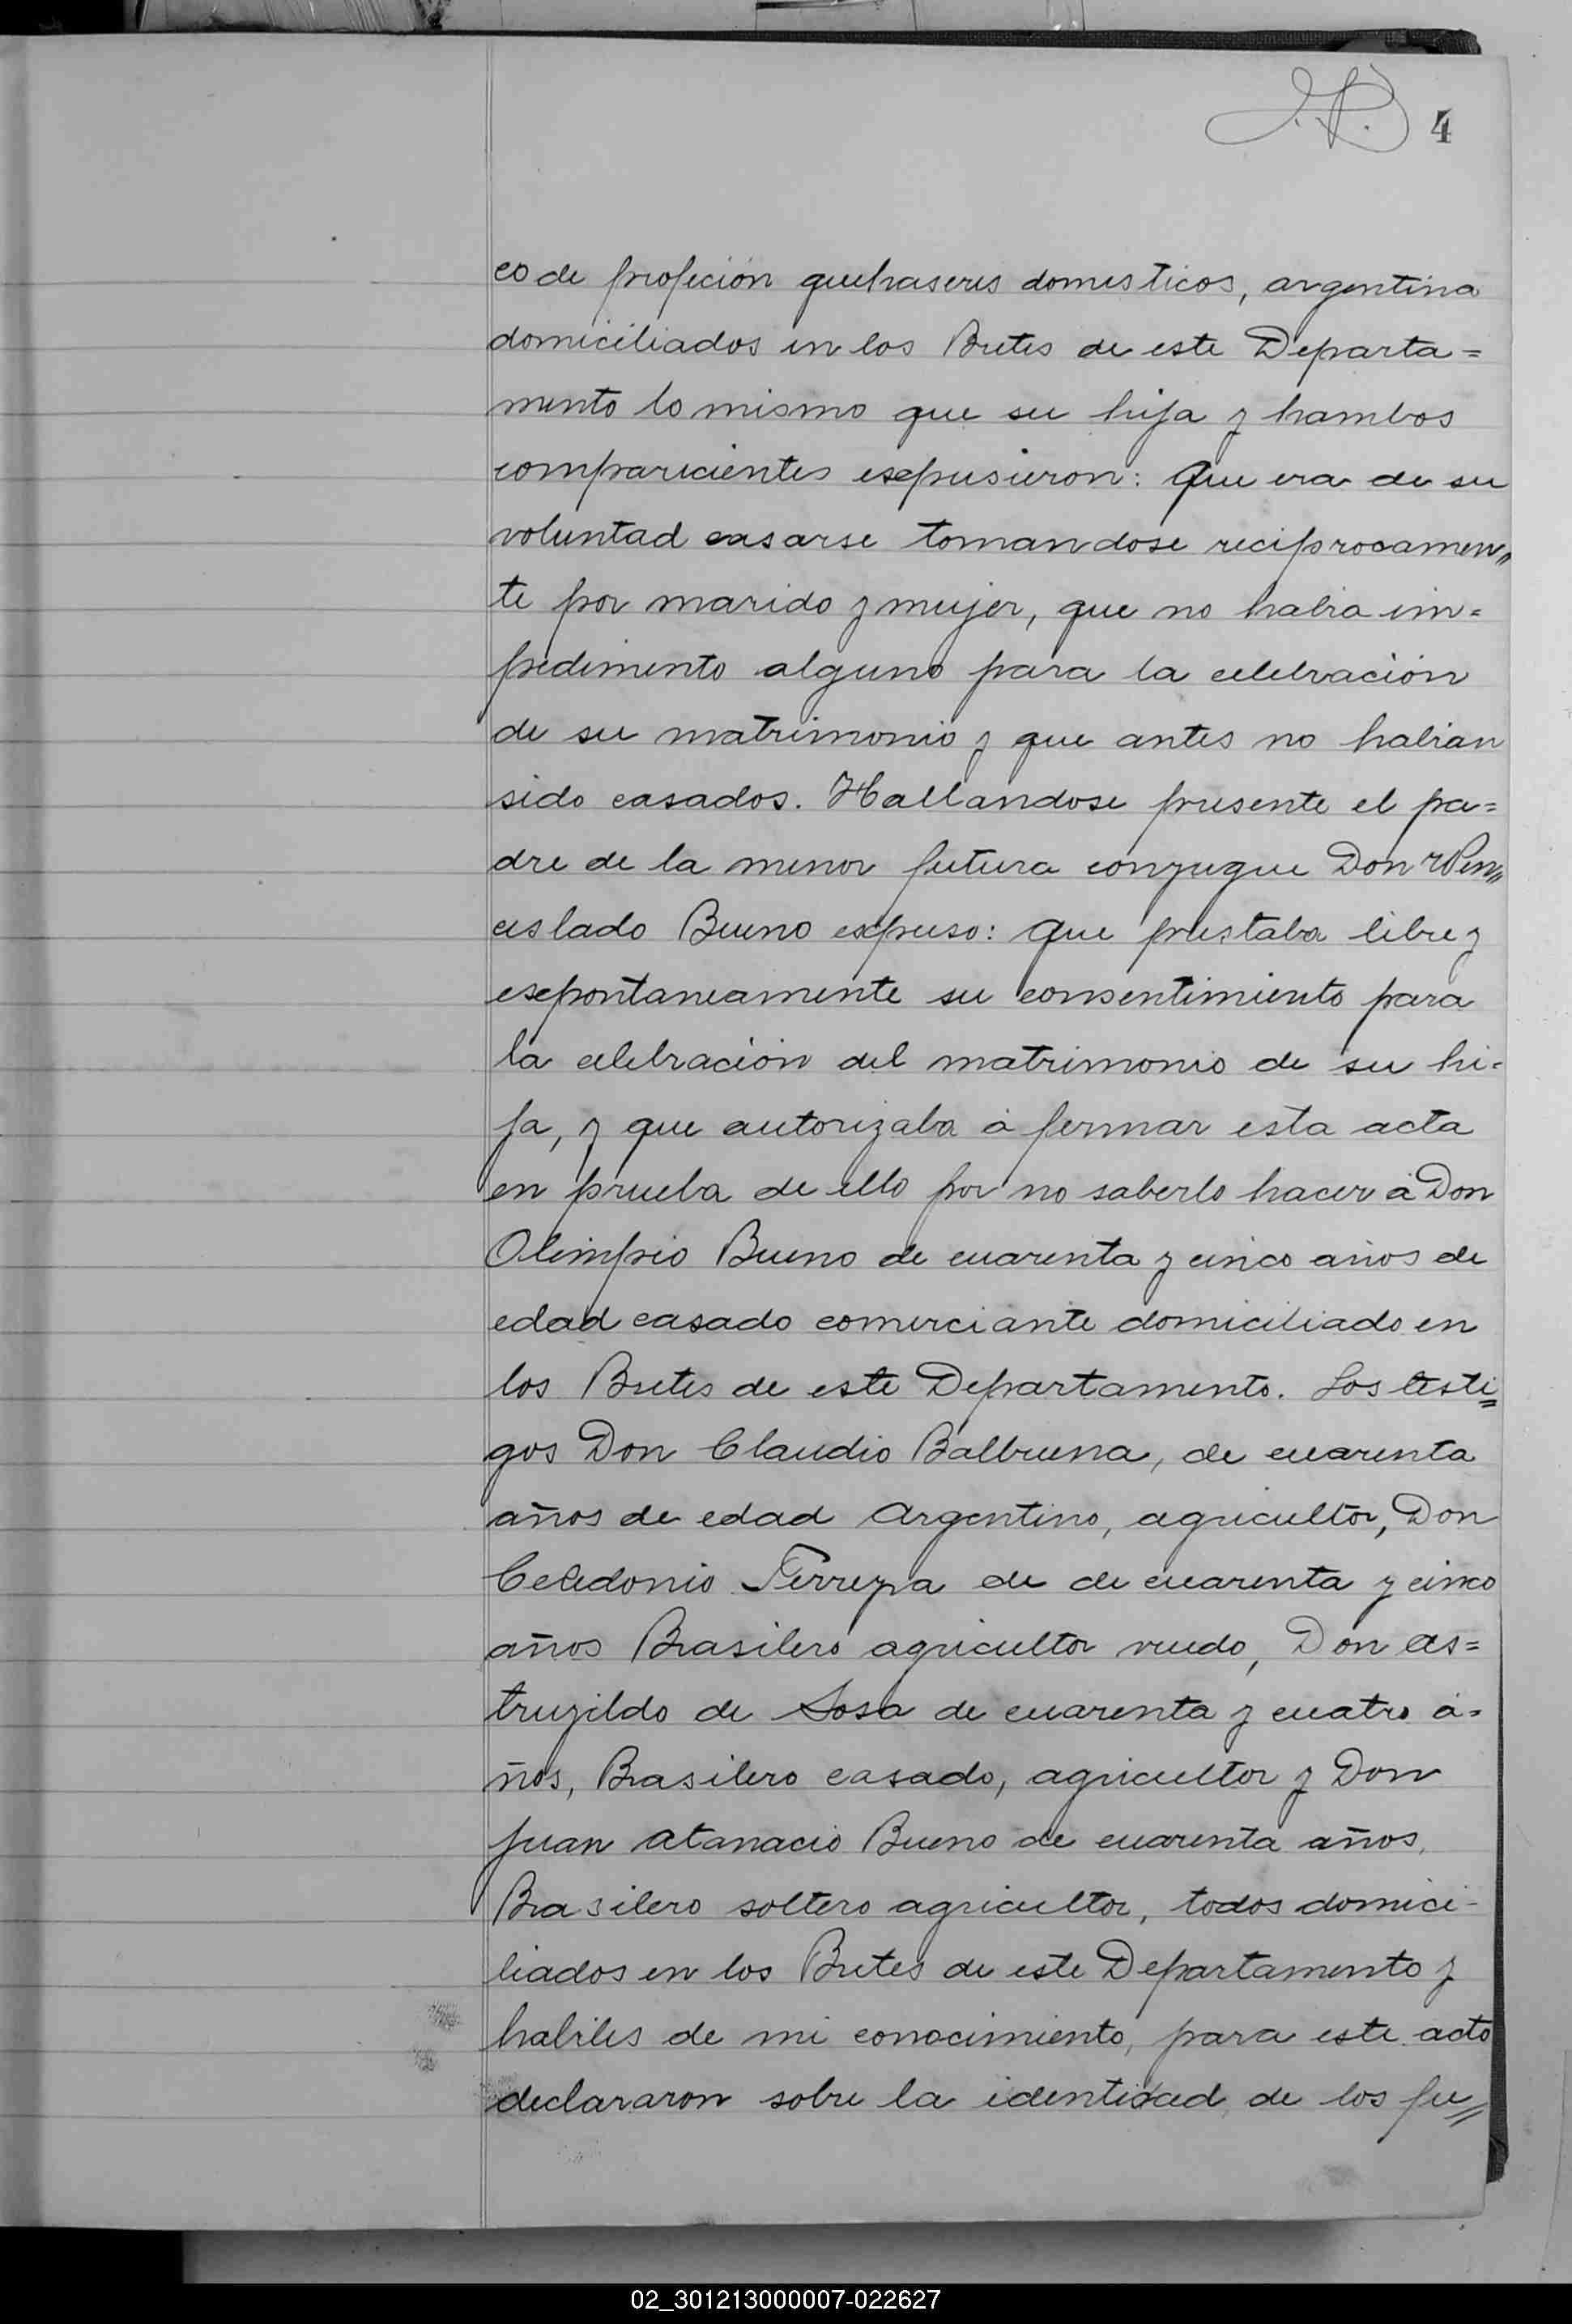 4
co de profeción quehaseres domesticos, argentina
domiciliados en los Bretes de este Departa=
mento lo mismo que su hija y hambos
comparecientes esepusieron: que era de su
voluntad casarse tomandose reciprocamen"
te por marido y mujer, que no habia im=
pedimento alguno para la celebración
de su matrimonio y que antes no habian
sido casados. Hallandose presente el pa=
dre de la menor futura conyugue Don Wen"
ceslado Bueno espuso: que prestaba libre y
esepontaneamente su consentimiento para
la celebración del matrimonio de su hi-
ja, y que autorizaba á fermar esta acta
en prueba de ello por no saberlo hacer á Don
Olimpio Bueno de cuarenta y cinco años de
edad casado comerciante domiciliado en
los Bretes de este Departamento. Los testi=
gos Don Claudio Balbuena, de cuarenta
años de edad Argentino, agricultor, Don
Celedonio Ferreyra de de cuarenta y cinco
años Brasilero agricultor viudo, Don As=
trugildo de Sosa de cuarenta y cuatro a=
ños, Brasilero casado, agricultor y Don
Juan Atanacio Bueno de cuarenta años,
Brasilero soltero agricultor, todos domici-
liados en los Bretes de este Departamento y
habiles de mi conocimiento, para este acto
declararon sobre la identidad de los fu"
02_301213000007-022627